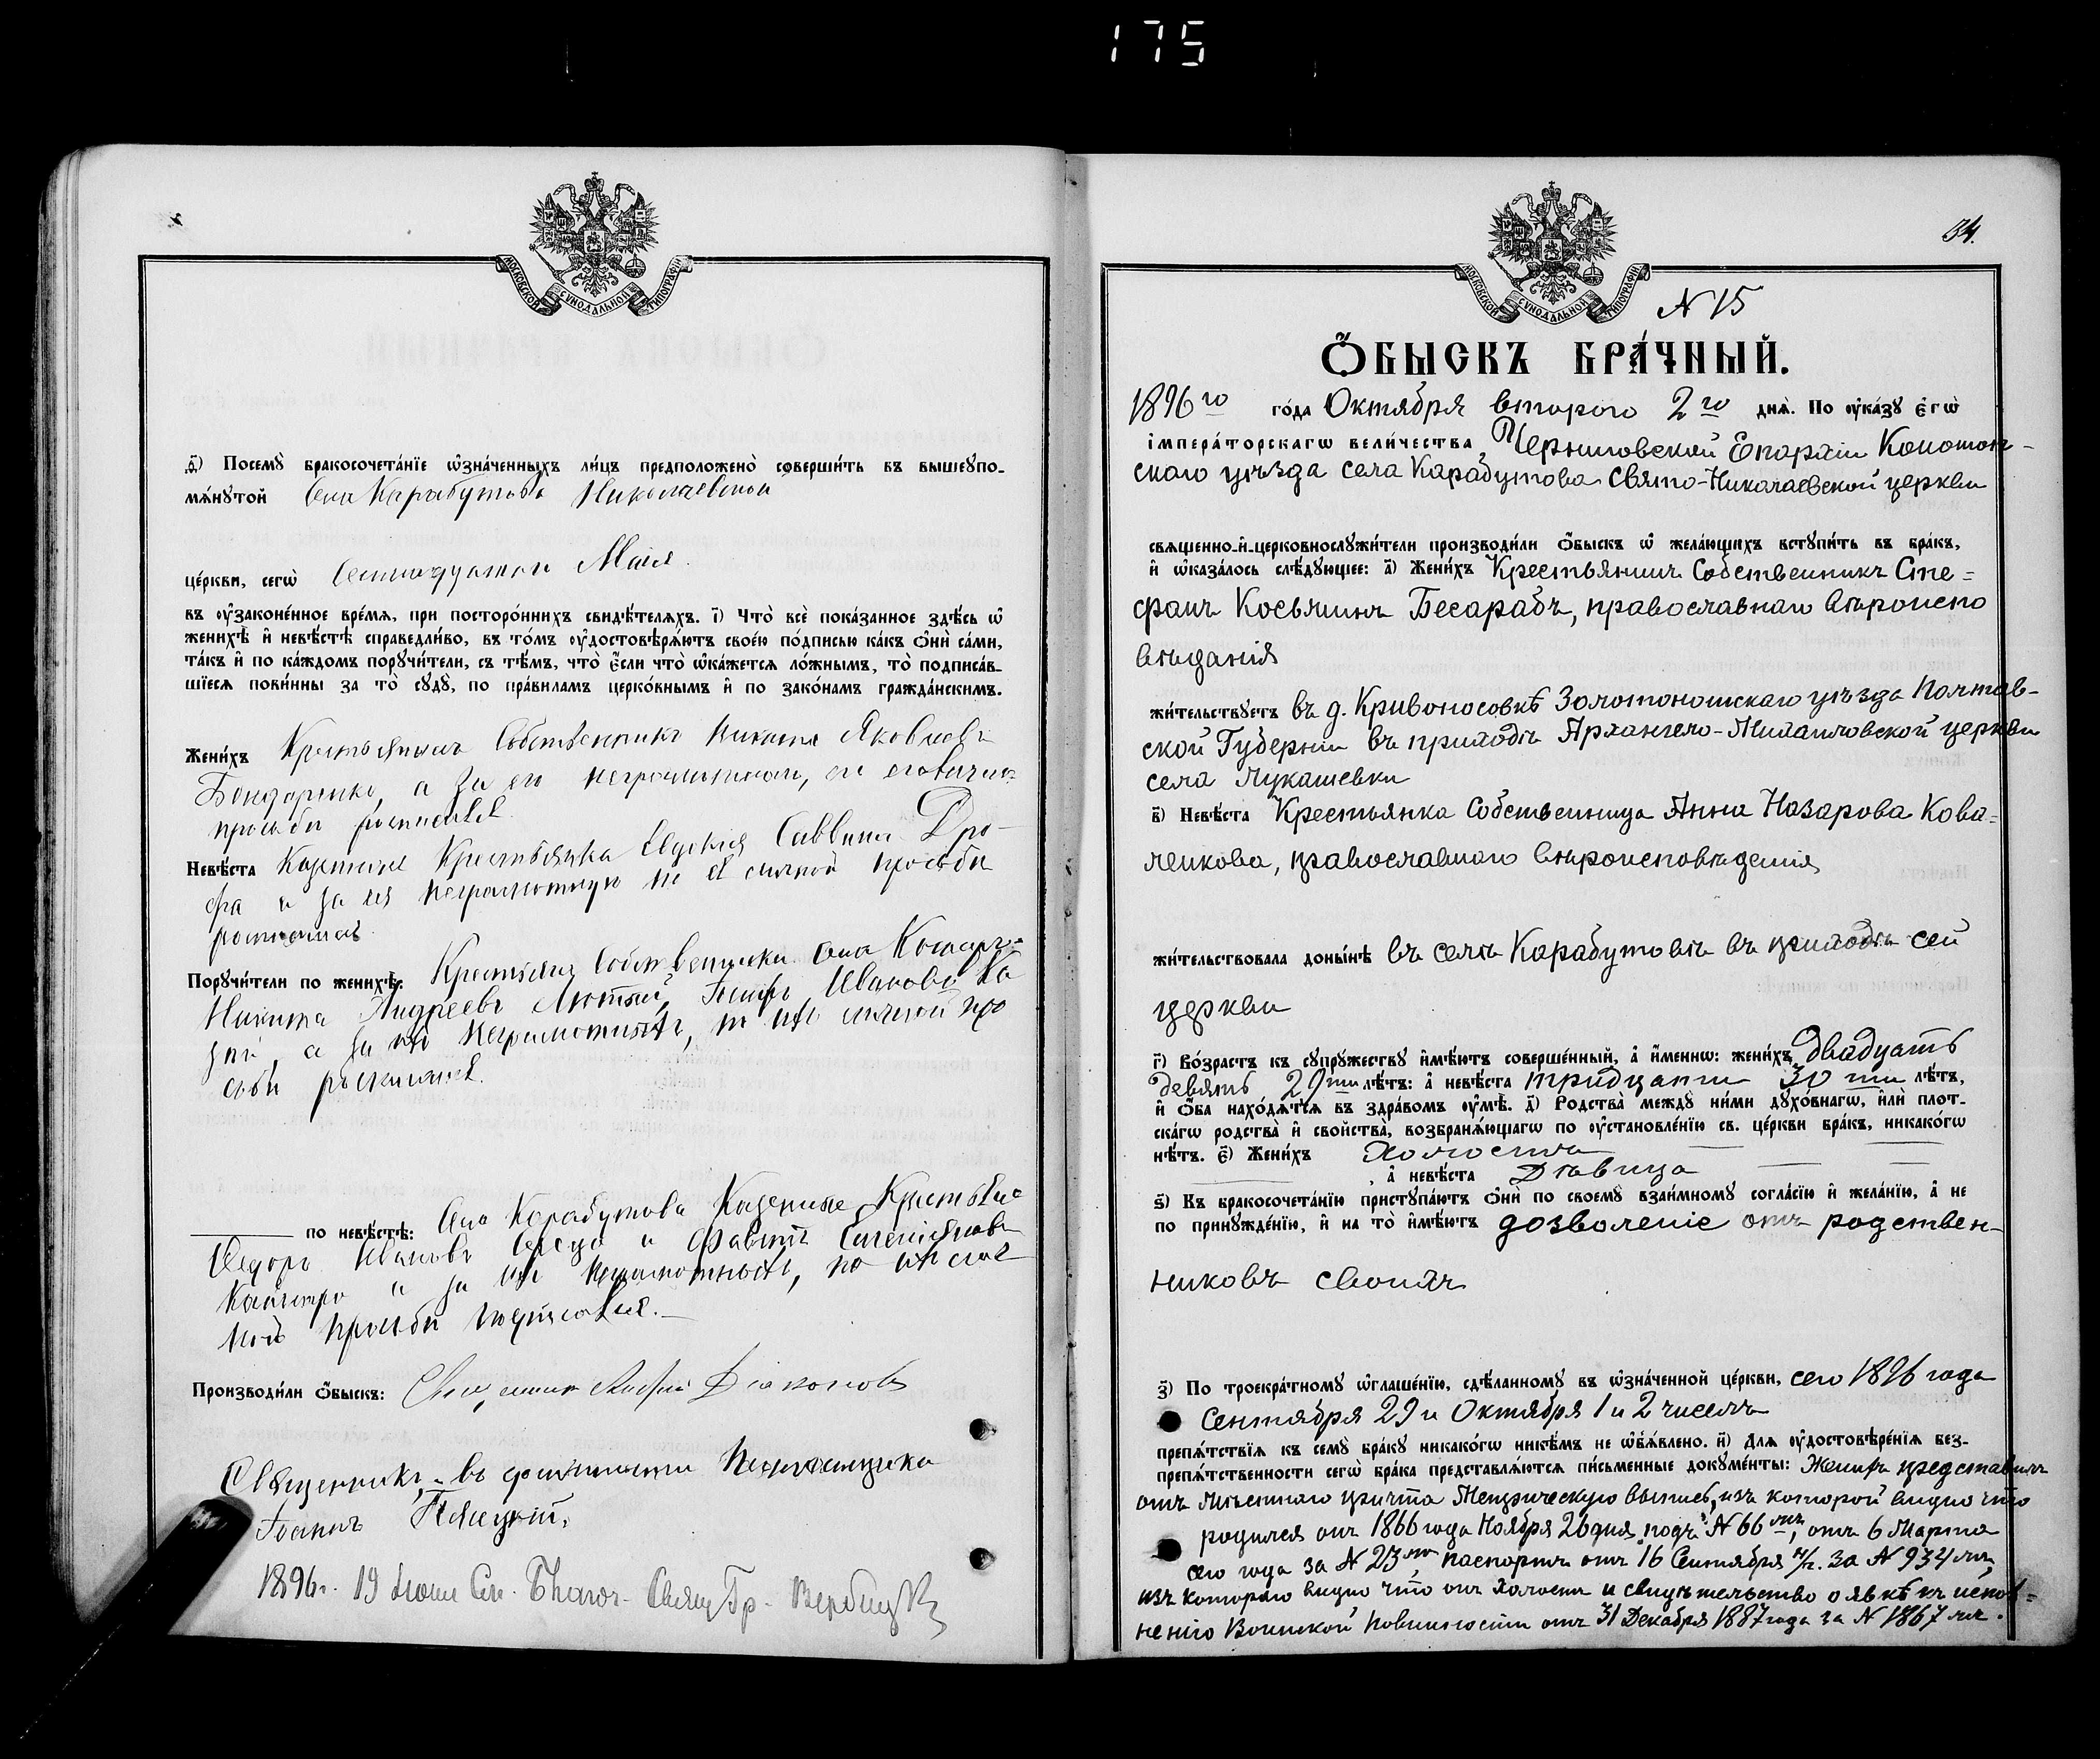 175
МОСКОВСКОЙ СѴНОДАЛЬНОЙ ТИПОГРАФІИ
ѳ҃) Посемꙋ̀ бракосочета́нїе ѡ҆зна́ченныхъ ли́цъ предположено̀ соверши́ть въ вышеꙋпо-
мѧ́нꙋтой Села Карабутова Николаевской
це́ркви, сегѡ̀ Семнадцатаго Мая
въ ᲂу҆законе́нное вре́мѧ, при посторо́ннихъ свидѣ́телѧхъ. і҃) Что̀ всѐ пока́занное здѣ́сь ѡ҆
женихѣ̀ и҆ невѣ́стѣ справедли́во, въ то́мъ ᲂу҆достовѣрѧ́ютъ свое́ю по́дписью ка́къ ѻ҆нѝ са́ми,
та́къ и҆ по ка́ждомъ порꙋчи́тели, съ тѣ́мъ, что̀ є҆́сли что̀ ѡ҆ка́жетсѧ ло́жнымъ, то̀ подписа́в-
шїесѧ пови́нны за то̀ сꙋдꙋ̀, по пра́виламъ церко́внымъ и҆ по зако́намъ гражда́нскимъ.
Жени́хъ Крестьянинъ Собственникъ Яковлевъ
Бондаренко, а за его
просьбѣ росписался
Невѣ́ста Казачка Крестьянка Евдокія Саввина Дро-
фа и за ея неграмотную по ея личной просьбѣ
росписался
Порꙋчи́тели по женихѣ̀: Крестьяне Собственники села
Никита Андреевъ Лютый, Ивановъ Ка
а за ихъ неграмотныхъ, по ихъ личной про
сьбѣ росписался.
по невѣ́стѣ: Села Карабутова Казенные Крестьяне
Федоръ Ивановъ и
и за ихъ неграмотность, по ихъ лич
ной просьбѣ подписался.
Производи́ли ѻ҆́быскъ: Священникъ Діаконовъ
Священникъ, въ должности Псаломщика
Іоаннъ
1896г. 19 Свящ Гр. Вербицкій
34.
МОСКОВСКОЙ СѴНОДАЛЬНОЙ ТИПОГРАФІИ
N 15
Ѻ҆́БЫСКЪ БРА́ЧНЫЙ.
1896го го́да Октября второго 2го днѧ̀. По ᲂу҆ка́зꙋ є҆гѡ̀
і҆мпера́торскагѡ вели́чества, Черниговской Епархіи Конотоп-
скаго уѣзда села Карабутова Свято-Николаевской церкви
свѧщенно-и҆-церковнослꙋжи́тели производи́ли ѻ҆́быскъ ѡ҆ жела́ющихъ встꙋпи́ть въ бра́къ,
и҆ ѡ҆каза́лось слѣ́дꙋющее: а҃) Жени́хъ Крестьянинъ Собственникъ Сте=
фанъ Косьминъ Бесарабъ, православнаго вѣроиспо
вѣданія
жи́тельствꙋетъ въ д. Кривоносовкѣ Золотоношскаго уѣзда Полтав-
ской Губерніи въ приходѣ Архангело-Михаиловской церкви
села Лукашевки
в҃) Невѣ́ста Крестьянка Собственница Анна Назарова Кова=
ленкова, православнаго вѣроисповѣданія
жи́тельствовала доны́нѣ въ селѣ Карабутовѣ въ приходѣ сей
церкви
г҃) Во́зрастъ къ сꙋпрꙋ́жествꙋ и҆мѣ́ютъ соверше́нный, а҆ и҆́меннѡ: жени́хъ двадцать
девять 29ти лѣ́тъ: а҆ невѣ́ста тридцати 30ти лѣ́тъ,
и҆ ѻ҆́ба нахо́дѧтсѧ въ здра́вомъ ᲂу҆мѣ̀. д҃) Родства̀ междꙋ ни́ми дꙋхо́внагѡ, и҆лѝ плот-
ска́гѡ родства̀ и҆ сво́йства, возбранѧ́ющагѡ по ᲂу҆становле́нїю св. це́ркви бра́къ, никако́гѡ
нѣ́тъ. є҃) Жени́хъ Холостъ
, а҆ невѣ́ста Дѣвица
ѕ҃) Къ бракосочета́нїю пристꙋпа́ютъ ѻ҆нѝ по своемꙋ̀ взаи́мномꙋ согла́сїю и҆ жела́нїю, а҆ не
по принꙋжде́нїю, и҆ на то̀ и҆мѣ́ютъ дозволеніе отъ родствен-
никовъ своихъ
з҃) По троекра́тномꙋ ѡ҆глаше́нїю, сдѣ́ланномꙋ въ ѡ҆зна́ченной це́ркви, сего 1896 года
Сентября 29 и Октября 1 и 2 чиселъ
препѧ́тствїѧ къ семꙋ̀ бра́кꙋ никако́гѡ никѣ́мъ не ѡ҆б̾ѧ́влено. и҃) Длѧ ᲂу҆достовѣре́нїѧ без-
препѧ́тственности сегѡ̀ бра́ка представлѧ́ютсѧ пи́сьменные докꙋме́нты: Женихъ представилъ
отъ мѣстнаго причта Метрическую выпись, изъ которой видно что
родился онъ 1866 года Ноября 26 дня подъ N 66мъ, отъ 6 Марта
сего года за N 23мъ, паспортъ отъ 16 Сентября н/г. за N 934мъ,
изъ котораго видно что онъ холостъ и свидѣтельство о явкѣ къ испол=
ненію Воинской повинности отъ 31 Декабря 1887 года за N 1867мъ.